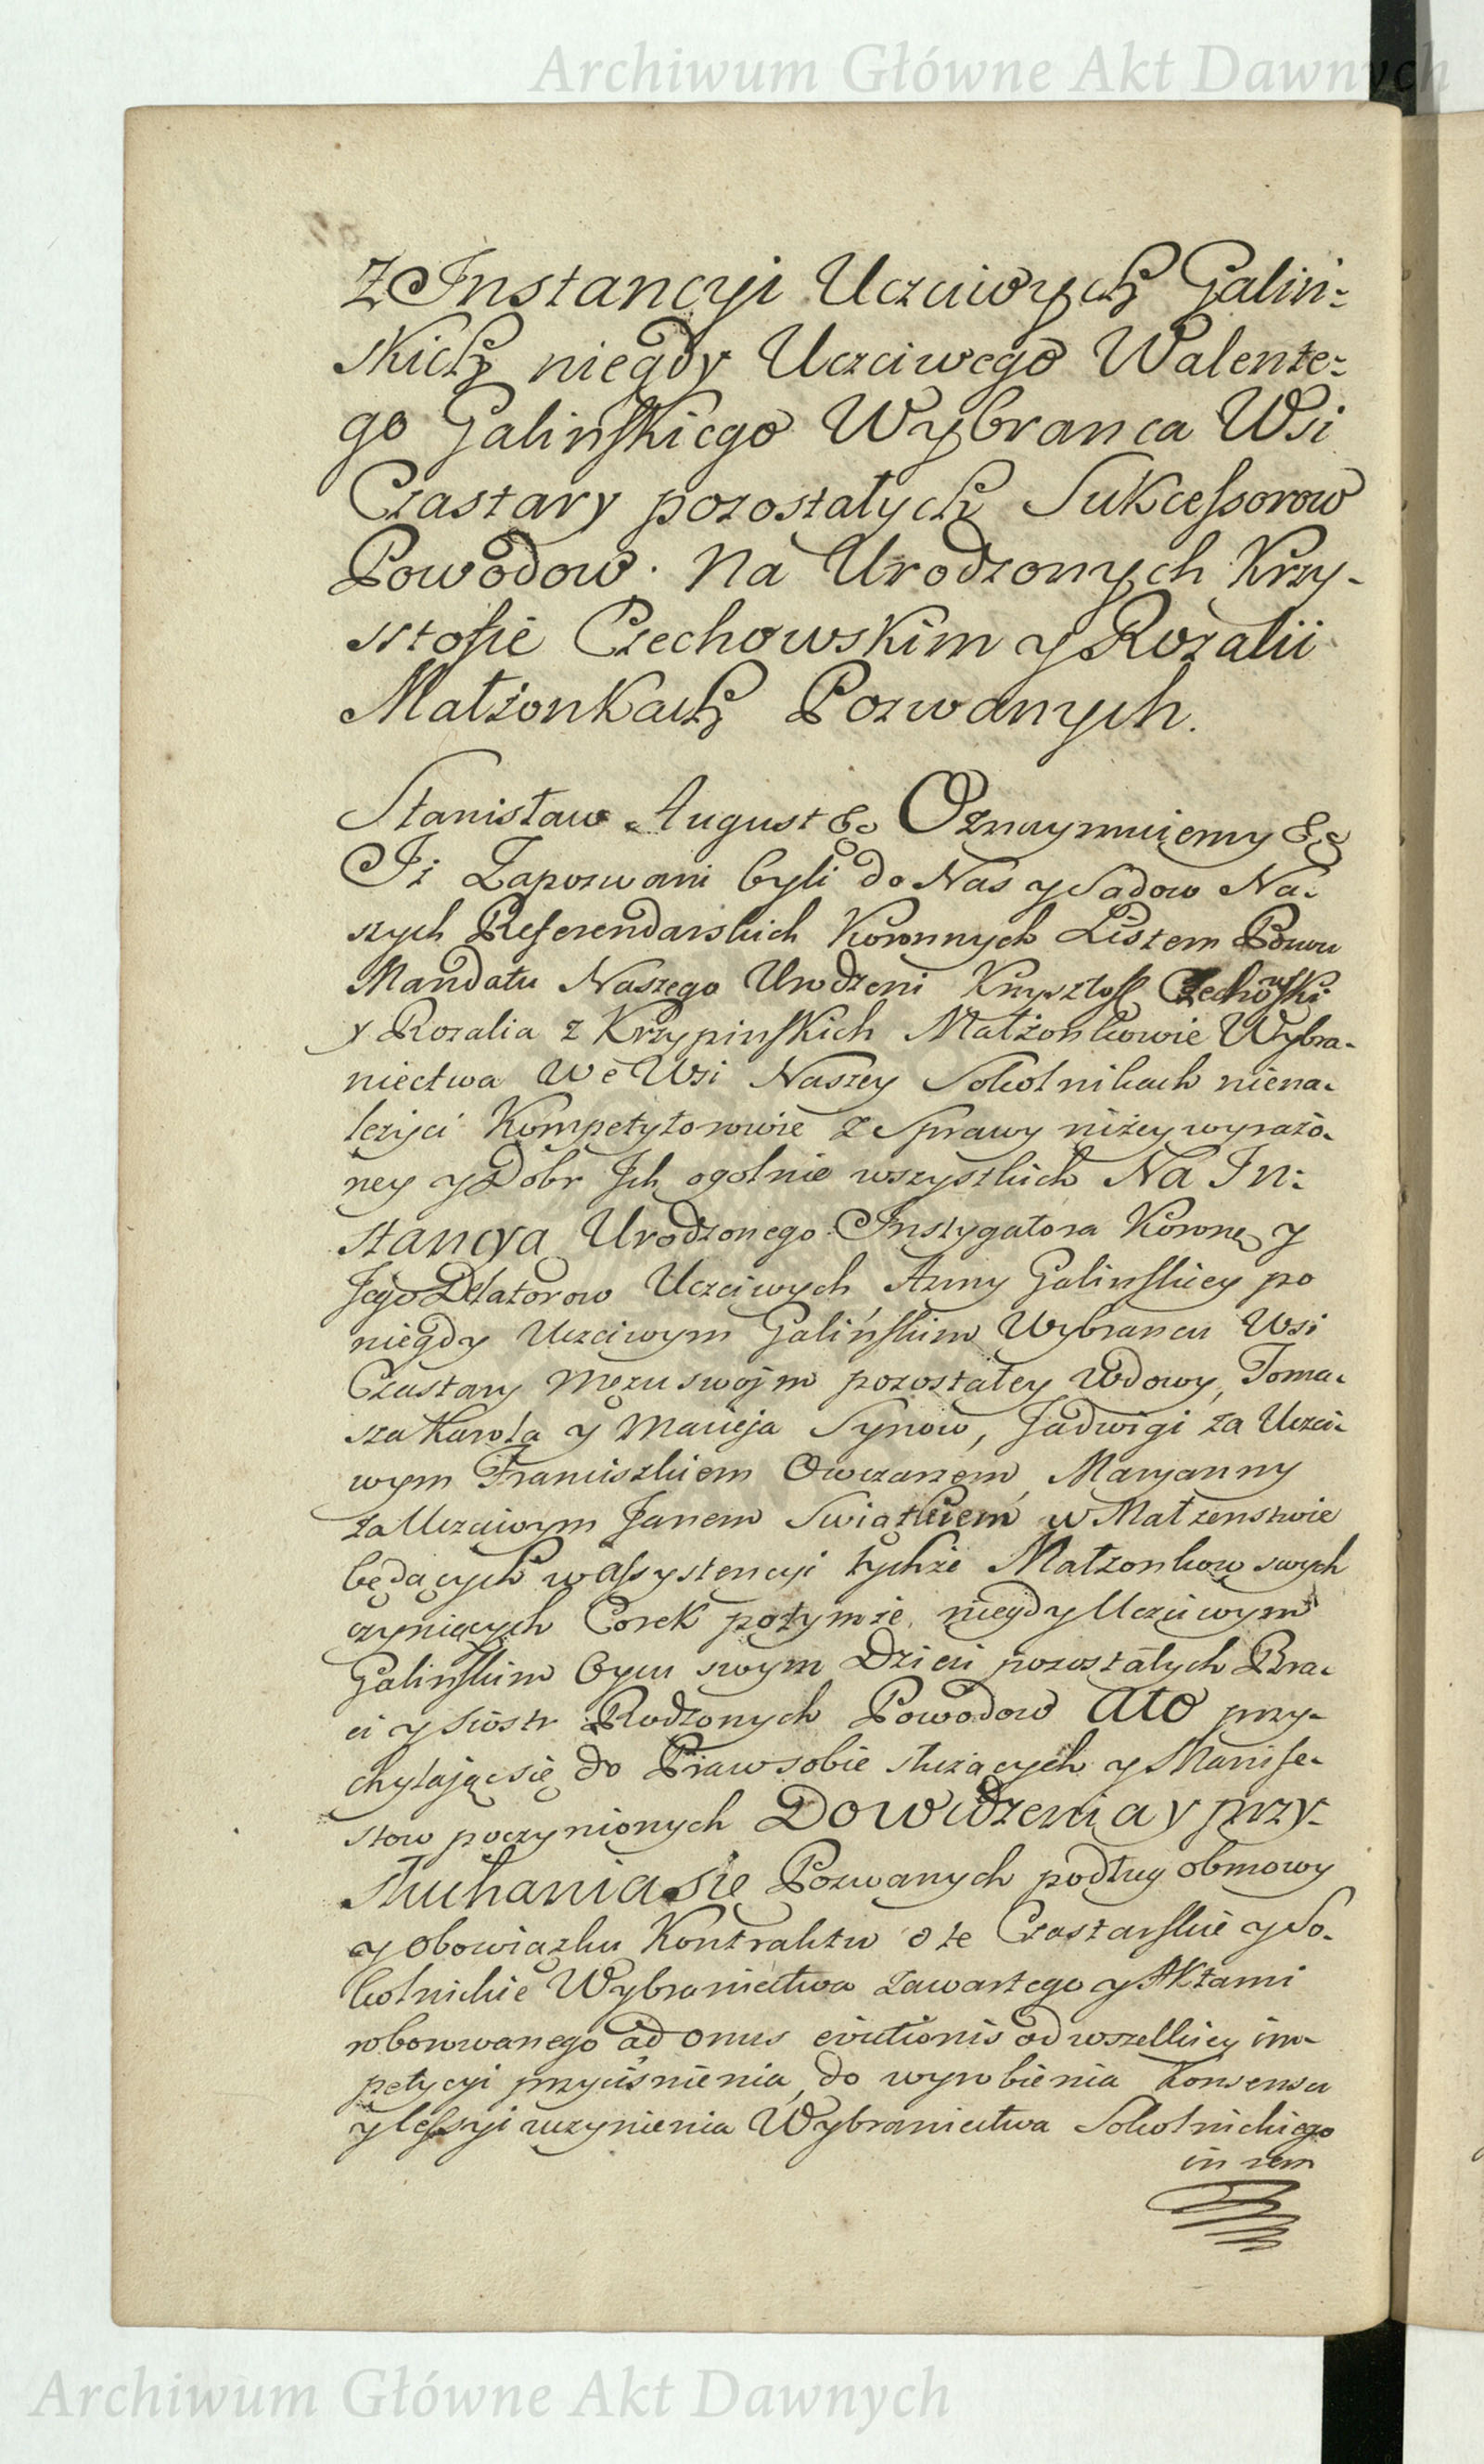 Archiwum Główne Akt Dawnych
Z Instancyi Uczciwych Galiń:
skich niegdy Uczciwego Walente:
go Galińskiego Wybranca Wsi
Czastary pozostałych Sukcessorow
Powodow. Na Urodzonych Krzy-
sztofie Czechowskim y Rozalii
Małżonkach Pozwanych.
Stanisław August &c Oznaymuiemy &c
Iż Zapozwani byli do Nas y Sadow Na-
szych Referendarskich Koronnych Listem Pozwu
Mandatu Naszego Urodzeni Krzysztoff Czechowski
y Rozalia z Krzypinskich Małżonkowie Wybra-
niectwa We Wsi Naszey Sokolnikach niena-
leżyci Kompetytorowie z Sprawy niżey wyrażo-
ney y Dobr Ich ogolnie wszystkich Na In:
stancyą Urodzonego Instygatora Koronn. y
Jego Delatorow Uczciwych Anny Galinskiey po
niegdy Uczciwym Galińskim Wybrancu Wsi
Czastary Mężu swojm pozostałey Wdowy, Toma-
sza Karola y Macieja Synow, Jadwigi za Uczci-
wym Franciszkiem Owczarzem, Maryanny
za Uczciwym Janem Swiątkiem w Małzenstwie
będących w assystencyi tychże Małzonkow swych
czyniących Corek po tymże niegdy Uczciwym
Galinskim Oycu swym Dzieci pozostałych Bra-
ci y Siostr Rodzonych Powodow Ato przy-
chylając się do Praw sobie służących y Manife-
stow poczynionych Do Widzenia y przy-
słuchania się Pozwanych podług obmowy
y obowiązku Kontraktu o te Czastarskie y So-
kolnickie Wybraniectwa zawartego y Aktami
roborowanego ad onus evictionis od wszelkiey im-
petycyi przyciśnienia, do wyrobienia konsensu
y cessyi uczynienia Wybraniectwa Sokolnickiego
in rem
Archiwum Główne Akt Dawnych